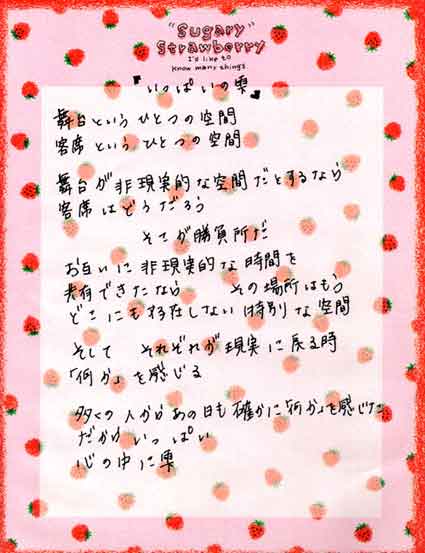 "Sugary"
Strawberry
I'd like to
know many things.
『いっぱいの雫』
舞台というひとつの空間
客席というひとつの空間
舞台が非現実的な空間だとするなら
客席はどうだろう
そこが勝負所だ
お互いに非現実的な時間を
共有できたなら その場所はもう
どこにも存在しない特別な空間
そして それぞれが現実に戻る時
「何か」を感じる
多くの人があの日も確かに「何か」を感じた
だからいっぱい
心の中に雫